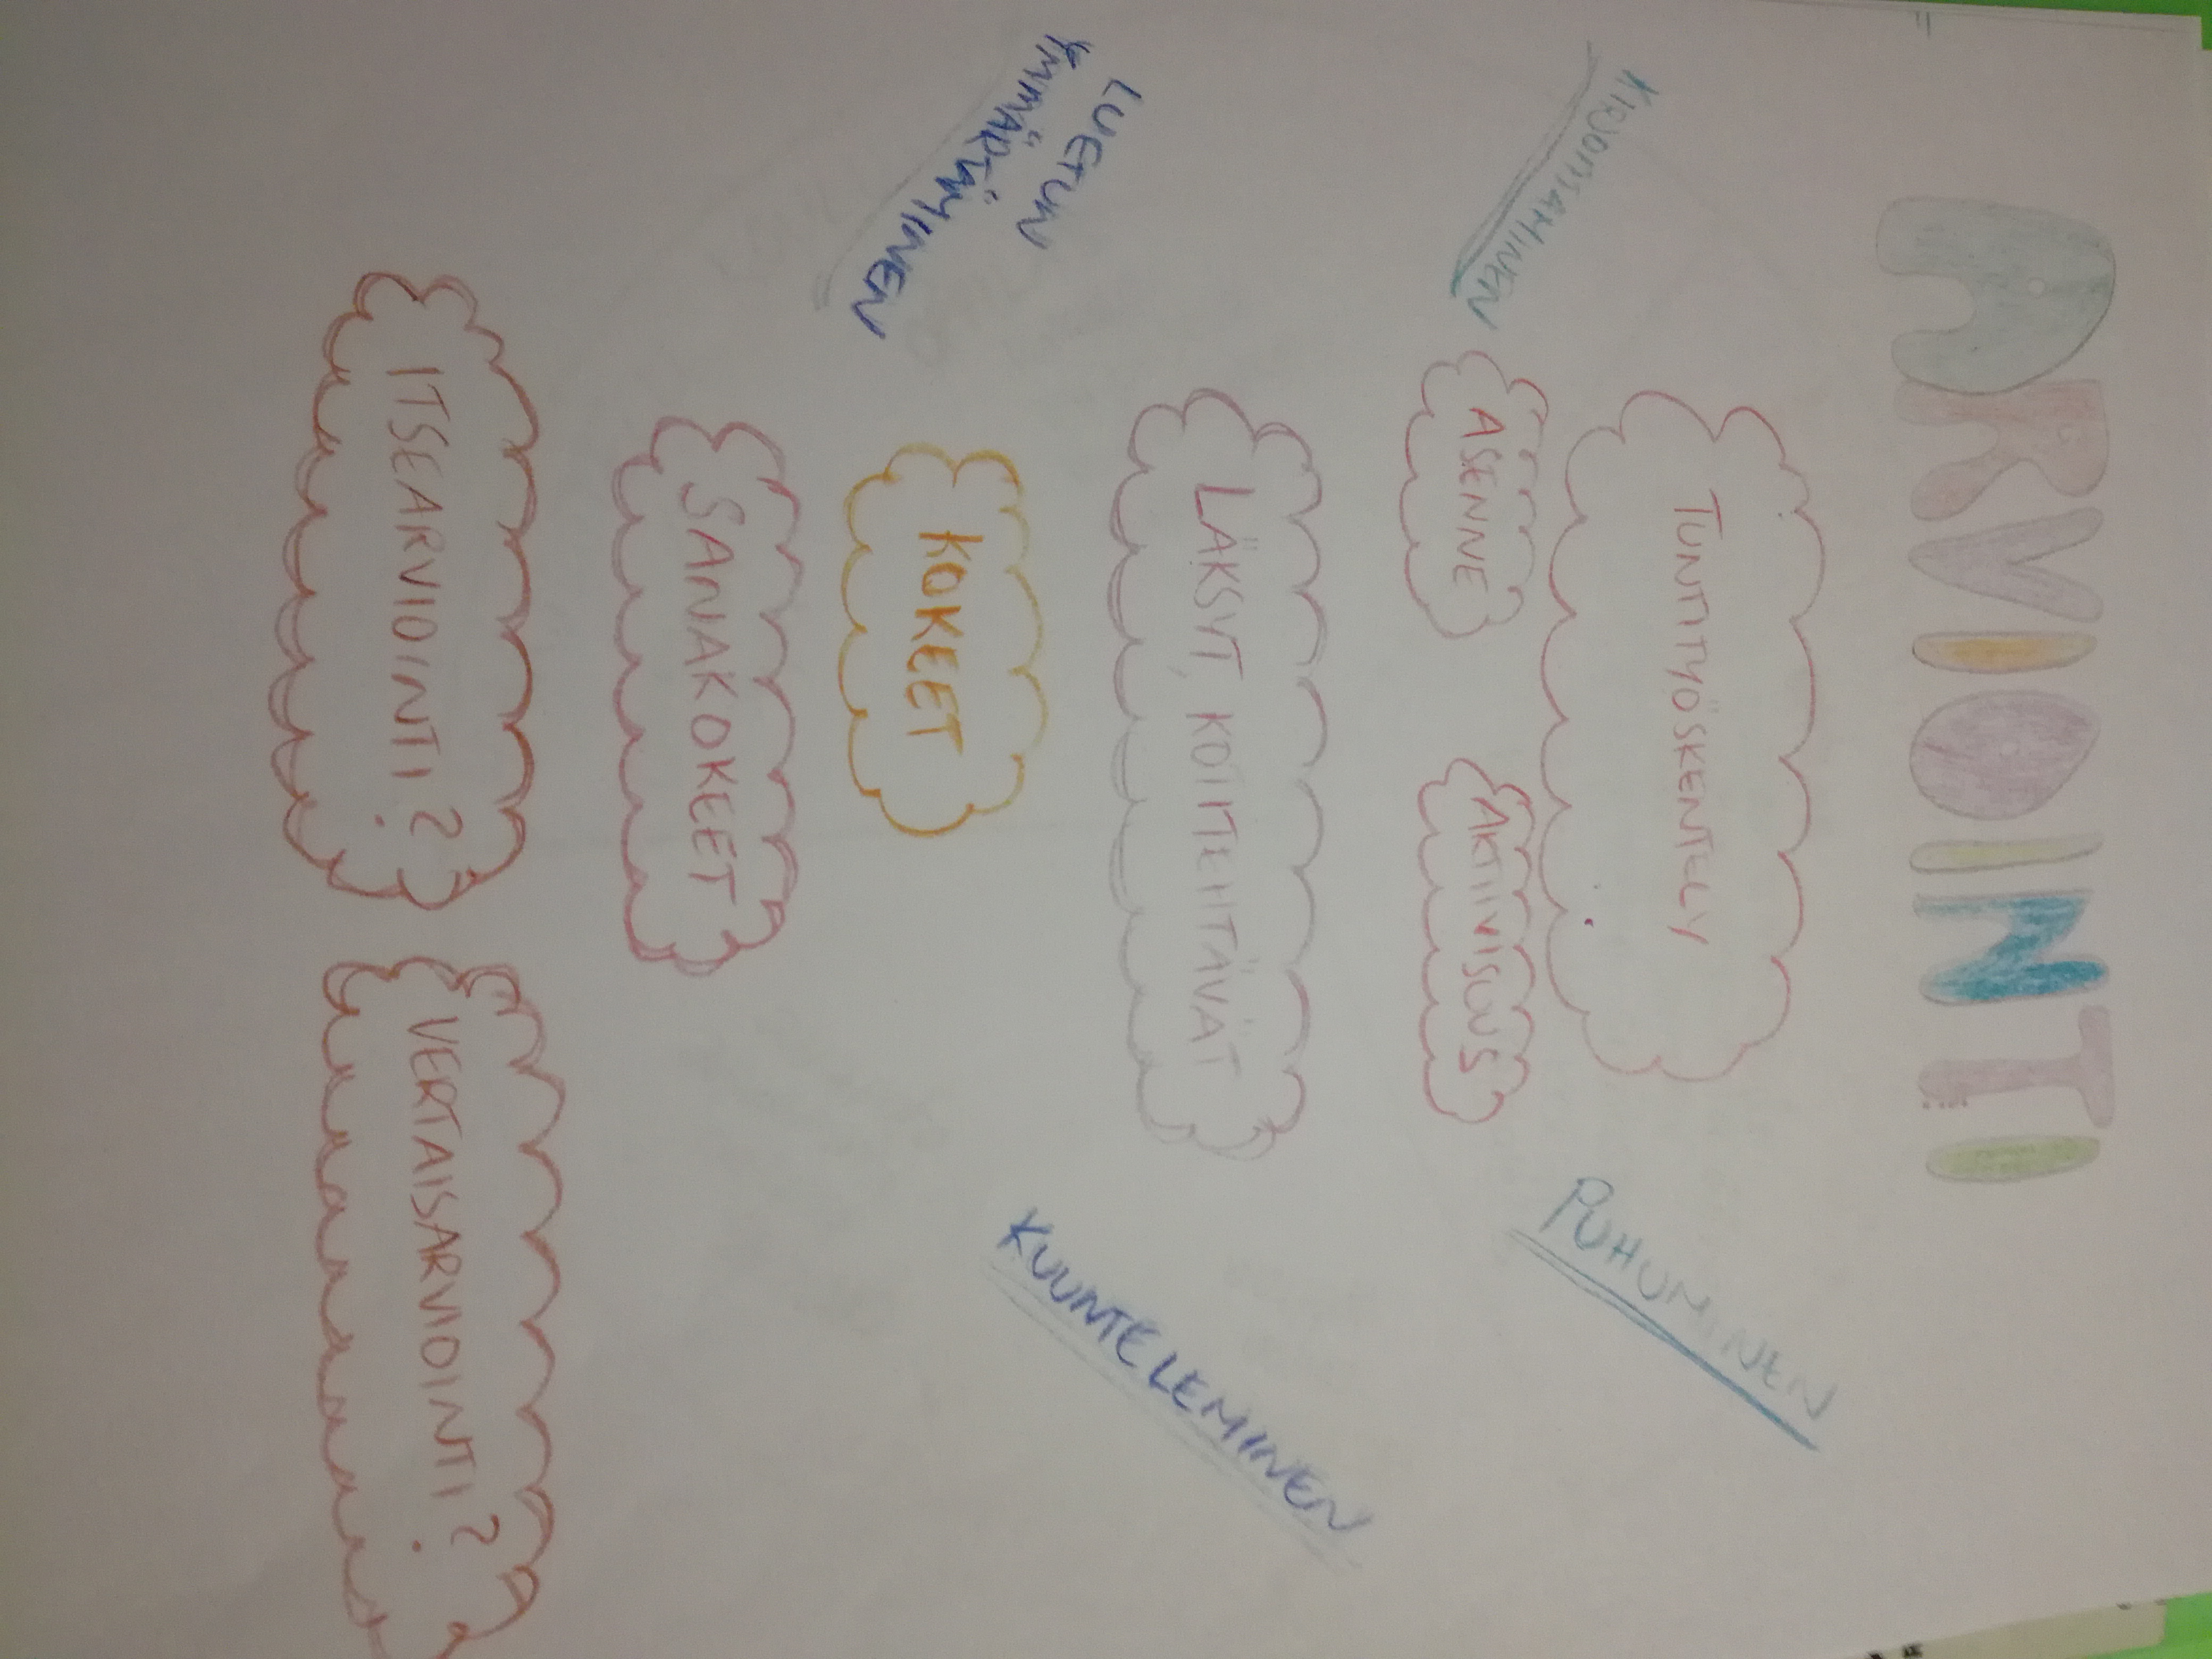 ARVIOINTI
TUNTITYÖSKENTELY
KIRJOITTAMINEN
PUHUMINEN
ASENNE
AKTIIVISUUS
LÄKSYT, KOTITEHTÄVÄT
LUETUN
YMMÄRTÄMINEN
KUUNTELEMINEN
KOKEET
SANAKOKEET
ITSEARVIOINTI?
VERTAISARVIOINTI?